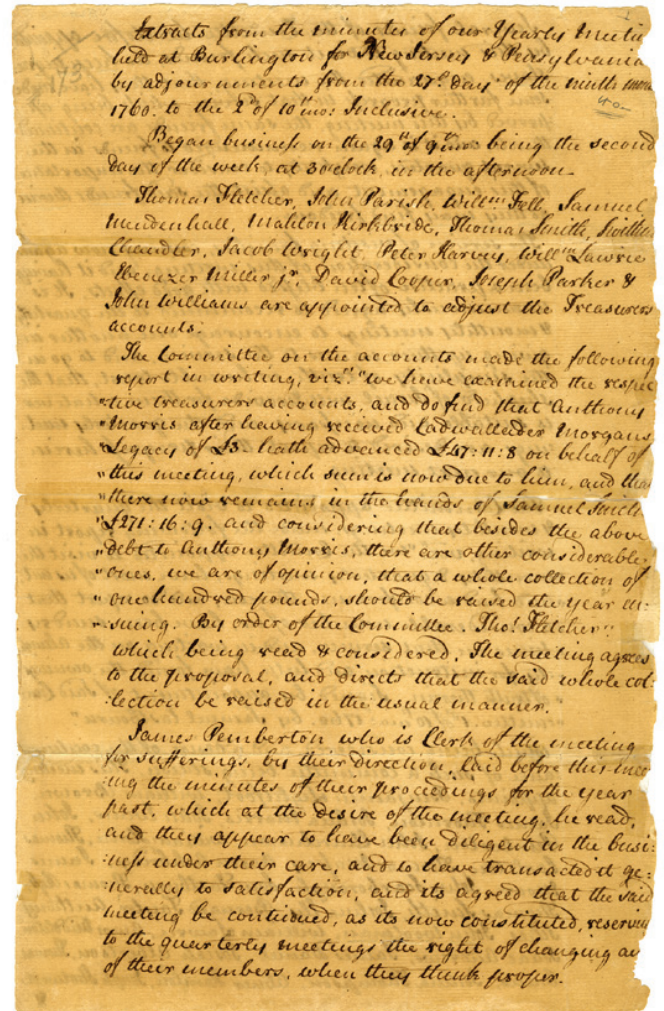 Extracts from the minutes of our Yearly Meetin
held at Burlington for New Jersey & Pensylvania
by adjournments from the 27.th day of the ninth mon
1760. to the 2d of 10th mo: Inclusive.
Began business on the 29th of 9th mo being the second
day of the week, at 3 oClock, in the afternoon.
Thomas Fletcher, John Parish, Willm Fell, Samuel
Mendenhall, Mahlon Kirkbride, Thomas Smith, Swithin
Chandler, Jacob Wright, Peter Harvey, Willm Lawrie
Ebenezer Miller jr, David Cooper, Joseph Parker &
John Williams are appointed to adjust the Treasurers
accounts.
The Committee on the accounts made the following
report in writing, vizt. "we have examined the respec
"tive treasurers accounts, and do find that Anthony
"Morris after having received Cadwallader Morgans
"Legacy of £5- hath advanced £47:11:8 on behalf of
"this meeting, which sum is now due to him, and tha
"there now remains in the hands of Samuel Smith
"£271:16:9. and considering that besides the above
"debt to Anthony Morris, there are other considerable
"ones, we are of opinion, that a whole collection of
"one hundred pounds, should be raised the year en-
"suing. By order of the Committee. Tho.s Fletcher"
which being read & considered, The meeting agrees
to the proposal, and directs that the said whole col-
:lection be raised in the usual manner.
James Pemberton who is Clerk of the meeting
for sufferings, by their direction, laid before this mee
ing the minutes of their proceedings for the year
past, which at the desire of the meeting, he read,
and they appear to have been diligent in the busi:
:ness under their care, and to have transacted it ge:
:nerally to satisfaction, and its agreed that the said
meeting be continued, as its now constituted, reservin
to the quarterly meetings the right of changing any
of their members, when they think proper.